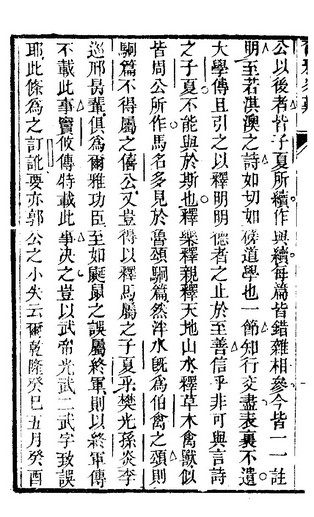 公以後者皆子夏所續作與續每篇皆錯雜相參今皆一一註
明至若淇澳之詩如切如磋道學也一節知行交盡表裏不遺
大學傳且引之以釋明明德者之止於至善信乎非可與言詩
之子夏不能與於斯也釋樂釋親釋天地山水釋草木禽獸似
皆周公所作馬名多見於魯頌駉篇然泮水既為伯禽之頌則
駉篇不得屬之僖公又豈得以釋馬屬之子夏乎樊光孫炎李
巡邢昺輩俱為爾雅功臣至如鼮鼠之誤屬終軍則以終軍傳
不載此事竇攸傳特載此事決之豈以武帝光武二武字致誤
耶此條為之訂訛要亦郭公之小失云爾乾隆癸巳五月癸酉